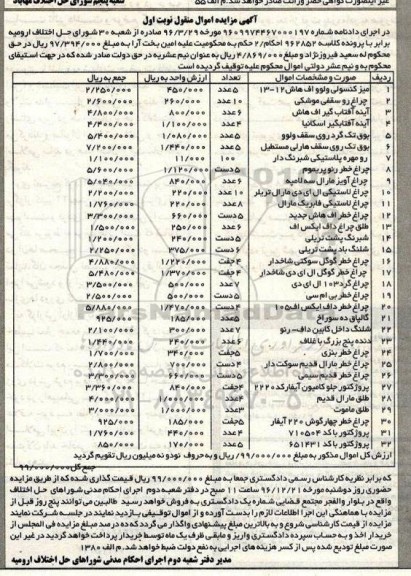 آگهی مزایده اموال منقول نوبت اول
در اجرای دادنامه شماره ۹۶۰۹۹۷۴۴۶۷۰۰۰۱۹۷ مورخه ۹۶/۳/۲۹ صادره از شعبه ۳۰ شورای حل اختلاف ارومیه
برابر با پرونده کلاسه ۹۶۲۸۵۲ احکام/۲ حکم به محکومیت علیه امین بخت آرا به مبلغ ۹۷/۳۹۴/۰۰۰ ریال در حق
محکوم له سعید فیروزنژاد و مبلغ ۴/۸۶۹/۰۰۰ ریال به عنوان نیم عشریه در حق دولت صادر شده که در جهت استیفای
محکوم به و نیم عشر دولتی اموال محکوم علیه توقیف گردیده است
ردیف صورت و مشخصات اموال تعداد ارزش واحد به ریال جمع به ریال
۱ میز کنسولی ولوو اف هاش ۱۲-۱۳ ۵عدد ۴۵۰/۰۰۰ ۲/۲۵۰/۰۰۰
۲ چراغ رو سقفی موشکی ۱۰عدد ۲۶۰/۰۰۰ ۲/۶۰۰/۰۰۰
۳ آینه آفتاب گیر اف هاش ۶عدد ۸۰۰/۰۰۰ ۴/۸۰۰/۰۰۰
۴ آینه آفتابگیر اسکانیا ۴عدد
۵ بوق تک گرد روی سقف ولوو ۵عدد ۱/۰۸۰/۰۰۰ ۵/۴۰۰/۰۰۰
۶ بوق تک روی سقف هارلی مستطیل ۵عدد ۱/۴۴۰/۰۰۰ ۷/۲۰۰/۰۰۰
۷ رو مهره پلاستیکی شبرنگ دار ۱۰۰ ۱۱/۰۰۰ ۱/۱۰۰/۰۰۰
۸ چراغ خطر رنو پریموم ۵دست ۱/۱۲۰/۰۰۰ ۵/۶۰۰/۰۰۰
۹ چراغ آویز مارال سه لامپه ۶عدد ۸۴۰/۰۰۰ ۵/۰۴۰/۰۰۰
۱۰ چراغ لاستیکی ال ای دی مارال تریلر ۱۰عدد ۲۲۰/۰۰۰ ۲/۲۰۰/۰۰۰
۱۱ چراغ لاستیکی فابریک مارال ۸عدد ۲۲۰/۰۰۰ ۱/۷۶۰/۰۰۰
۱۲ چراغ خطر اف هاش جدید ۵دست ۶۶۰/۰۰۰ ۳/۳۰۰/۰۰۰
۱۳ طلق چراغ داف ایکس اف ۶عدد ۲۵۰/۰۰۰ ۱/۵۰۰/۰۰۰
۱۴ شبرنگ پشت تریلی ۵دست ۲۴۰/۰۰۰ ۱/۲۰۰/۰۰۰
۱۵ شلنگ باد پشت تریلی ۶دست ۳۷۵/۰۰۰ ۲/۲۵۰/۰۰۰
۱۶ چراغ خطر گوگل سوکتی شاخدار ۴جفت ۱/۲۲۰/۰۰۰ ۴/۸۸۰/۰۰۰
۱۷ چراغ خطر گوگل ال ای دی شاخدار ۴جفت ۱/۳۷۰/۰۰۰ ۵/۴۸۰/۰۰۰
۱۸ چراغ گرد ۱۰۳ ال ای دی ۷عدد ۵۰۰/۰۰۰ ۳/۵۰۰/۰۰۰
۱۹ چراغ خطر بی ام سی ۵دست ۵۰۰/۰۰۰ ۲/۵۰۰/۰۰۰
۲۰ چراغ خطر داف ایکس اف۱۰۵ ۴دست ۱/۴۷۰/۰۰۰ ۵/۸۸۰/۰۰۰
۲۱ گالیاق ده سوراخ ۵عدد ۱۸۵/۰۰۰ ۹۲۵/۰۰۰
۲۲ شلنگ داخل کابین داف-رنو ۷عدد ۳۰۰/۰۰۰ ۲/۱۰۰/۰۰۰
۲۳ دنده پنج بزرگ با غلاف ۶عدد ۲۴۰/۰۰۰ ۱/۴۴۰/۰۰۰
۲۴ چراغ خطر بنزی ۵جفت ۳۴۰/۰۰۰ ۱/۷۰۰/۰۰۰
۲۵ چراغ خطر مارال قدیم سوکت دار ۴دست ۷۰۰/۰۰۰ ۲/۸۰۰/۰۰۰
۲۶ چراغ خطر قدیم سیمی ۵دست ۶۶۰/۰۰۰ ۳/۳۰۰/۰۰۰
۲۷ پروژکتور جلو کامیون آیفار کد ۲۲۲۰ ۴جفت ۸۴۰/۰۰۰ ۳/۳۶۰/۰۰۰
۲۸ طلق مارال قدیم
۲۹ طلق ماموت ۳عدد ۱/۰۰۰/۰۰۰ ۳/۰۰۰/۰۰۰
۳۰ چراغ خطر چهارگوش ۲۲۰ آیفار ۵جفت ۱۸۵/۰۰۰ ۹۲۵/۰۰۰
۳۱ پروژکتور با کد ۷۱۰۵۰۴ ۴عدد ۴۴۰/۰۰۰ ۱/۷۶۰/۰۰۰
۳۲ پروژکتور با کد ۶۵۱۴۳۱ ۵عدد ۱۷۰/۰۰۰ ۸۵۰/۰۰۰
ارزش کل اموال مذکور به مبلغ ۹۹/۰۰۰/۰۰۰ ریال و به حروف نود و نه میلیون ریال تقویم گردید
جمع کل ۹۹/۰۰۰/۰۰۰
که برابر نظریه کارشناس رسمی دادگستری جمعا به مبلغ ۹۹/۰۰۰/۰۰۰ ریال قیمت گذاری شده که از طریق مزایده
حضوری روز دوشنبه مورخه ۹۶/۱۲/۲۱ ساعت ۱۱ صبح در دفتر شعبه دوم اجرای احکام مدنی شوراهای حل اختلاف
واقع در بلوار والفجر مجتمع قضایی شماره یک دادگستری به فروش خواهد رسید طالبین می توانند پنج روز قبل از
مزایده با هماهنگی این اجرا اطلاعات لازم را بدست آورده و از اموال توقیفی بازدید نمایند در جلسه شرکت نمایند
مزایده از قیمت کارشناسی شروع و به بالاترین مبلغ پیشنهادی واگذار می گردد که ده درصد مبلغ مزایده فی المجلس از
خریدار اخذ و به حساب سپرده دادگستری واریز و مابقی ظرف یک ماه توسط خریدار پرداخت خواهد گردید در غیر این
صورت مبلغ تودیع شده پس از کسر هزینه های اجرایی به نفع دولت ضبط خواهد شد.م الف ۱۳۸۰
مدیر دفتر شعبه دوم اجرای احکام مدنی شوراهای حل اختلاف ارومیه